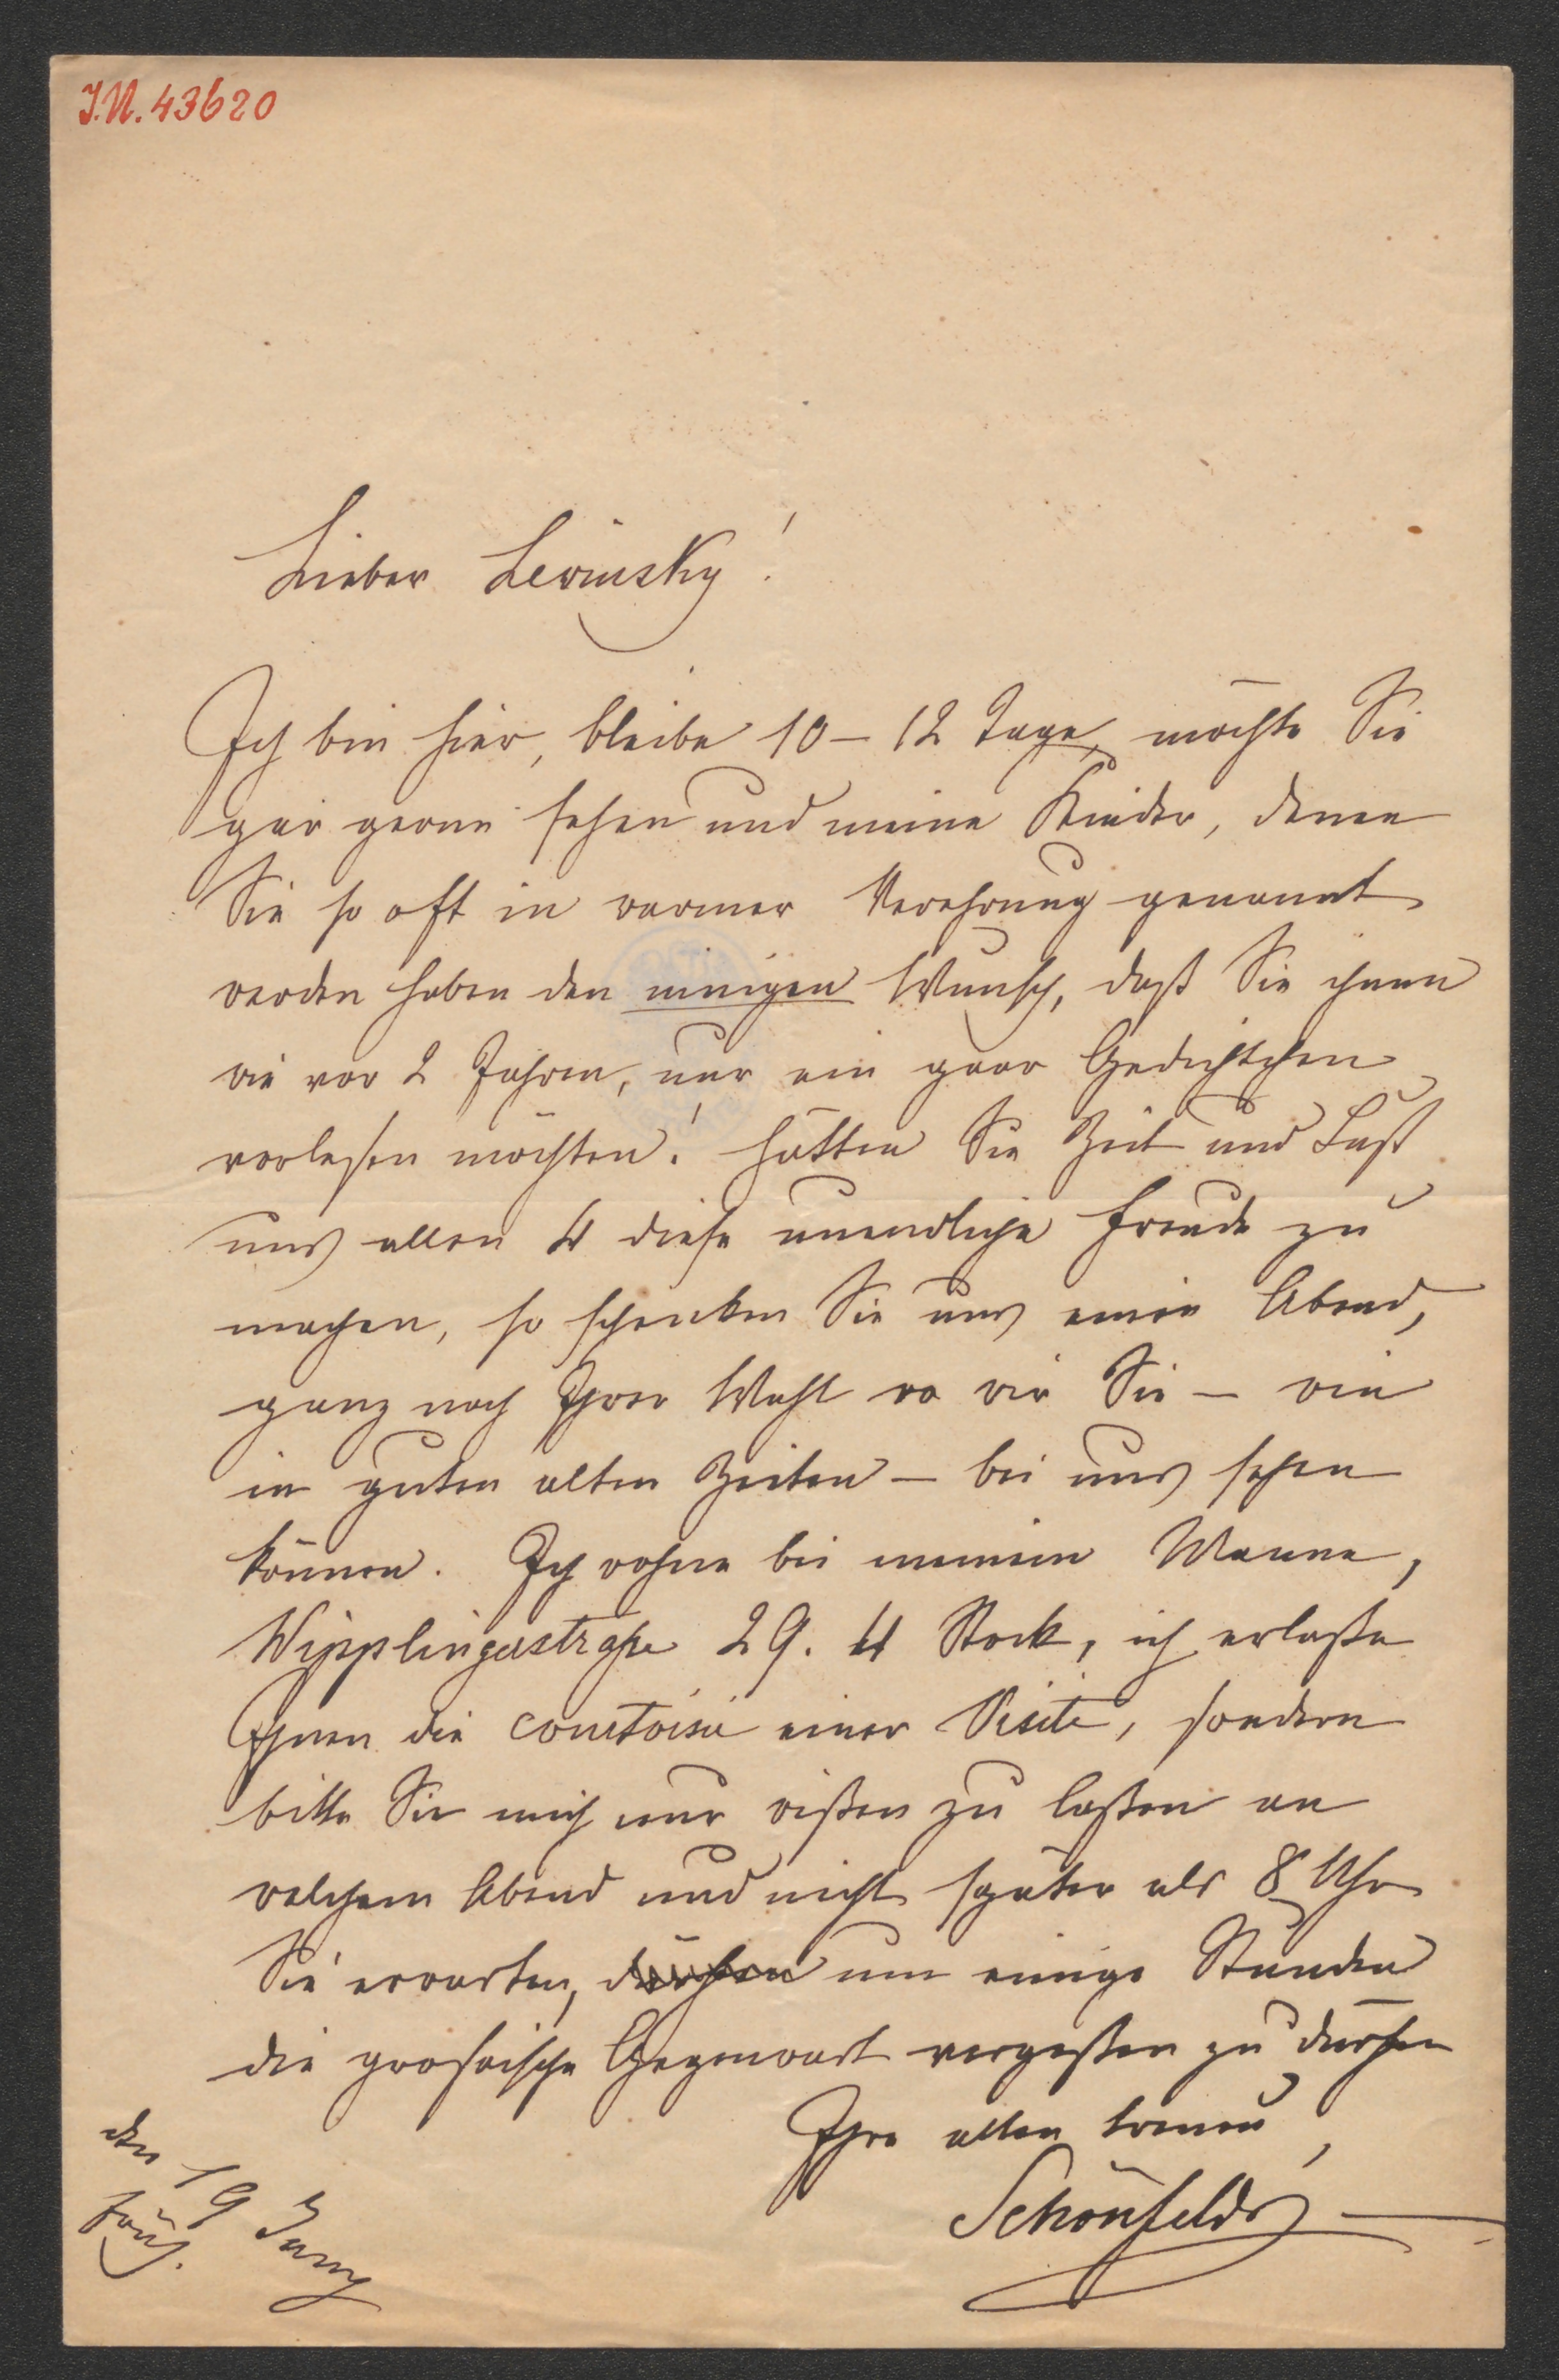 I.N. 43620
Lieber Lewinsky!
Ich bin hier, bleibe 10 – 12 Tage, möchte Sie
gar gerne sehen und meine Kinder, denen
Sie so oft in warmer Verehrung genannt
werden haben den einzigen Wunsch, daß Sie ihnen
wie vor 2 Jahren, nur ein paar Gedichtchen
vorlesen möchten! hätten Sie Zeit und Lust
uns allen 4 diese unendliche Freude zu
machen, so schenken Sie uns einen Abend,
ganz nach Ihrer Wahl wo wir Sie – wie
in guten alten Zeiten – bei uns sehen
können. Ich wohne bei meinem Manne,
Wipplingerstraße 29. 4 Stock, ich erlaße
Ihnen die courtoisie einer Visite, sondern
bitte Sie mich nur wißen zu laßen an
welchem Abend und nicht später als 8 Uhr
Sie erwarten, dürfen um einige Stunden
die prosaische Gegenwart vergeßen zu dürfen
Ihre alten treuen,
Schönfelds
den 19 Juny
früh.